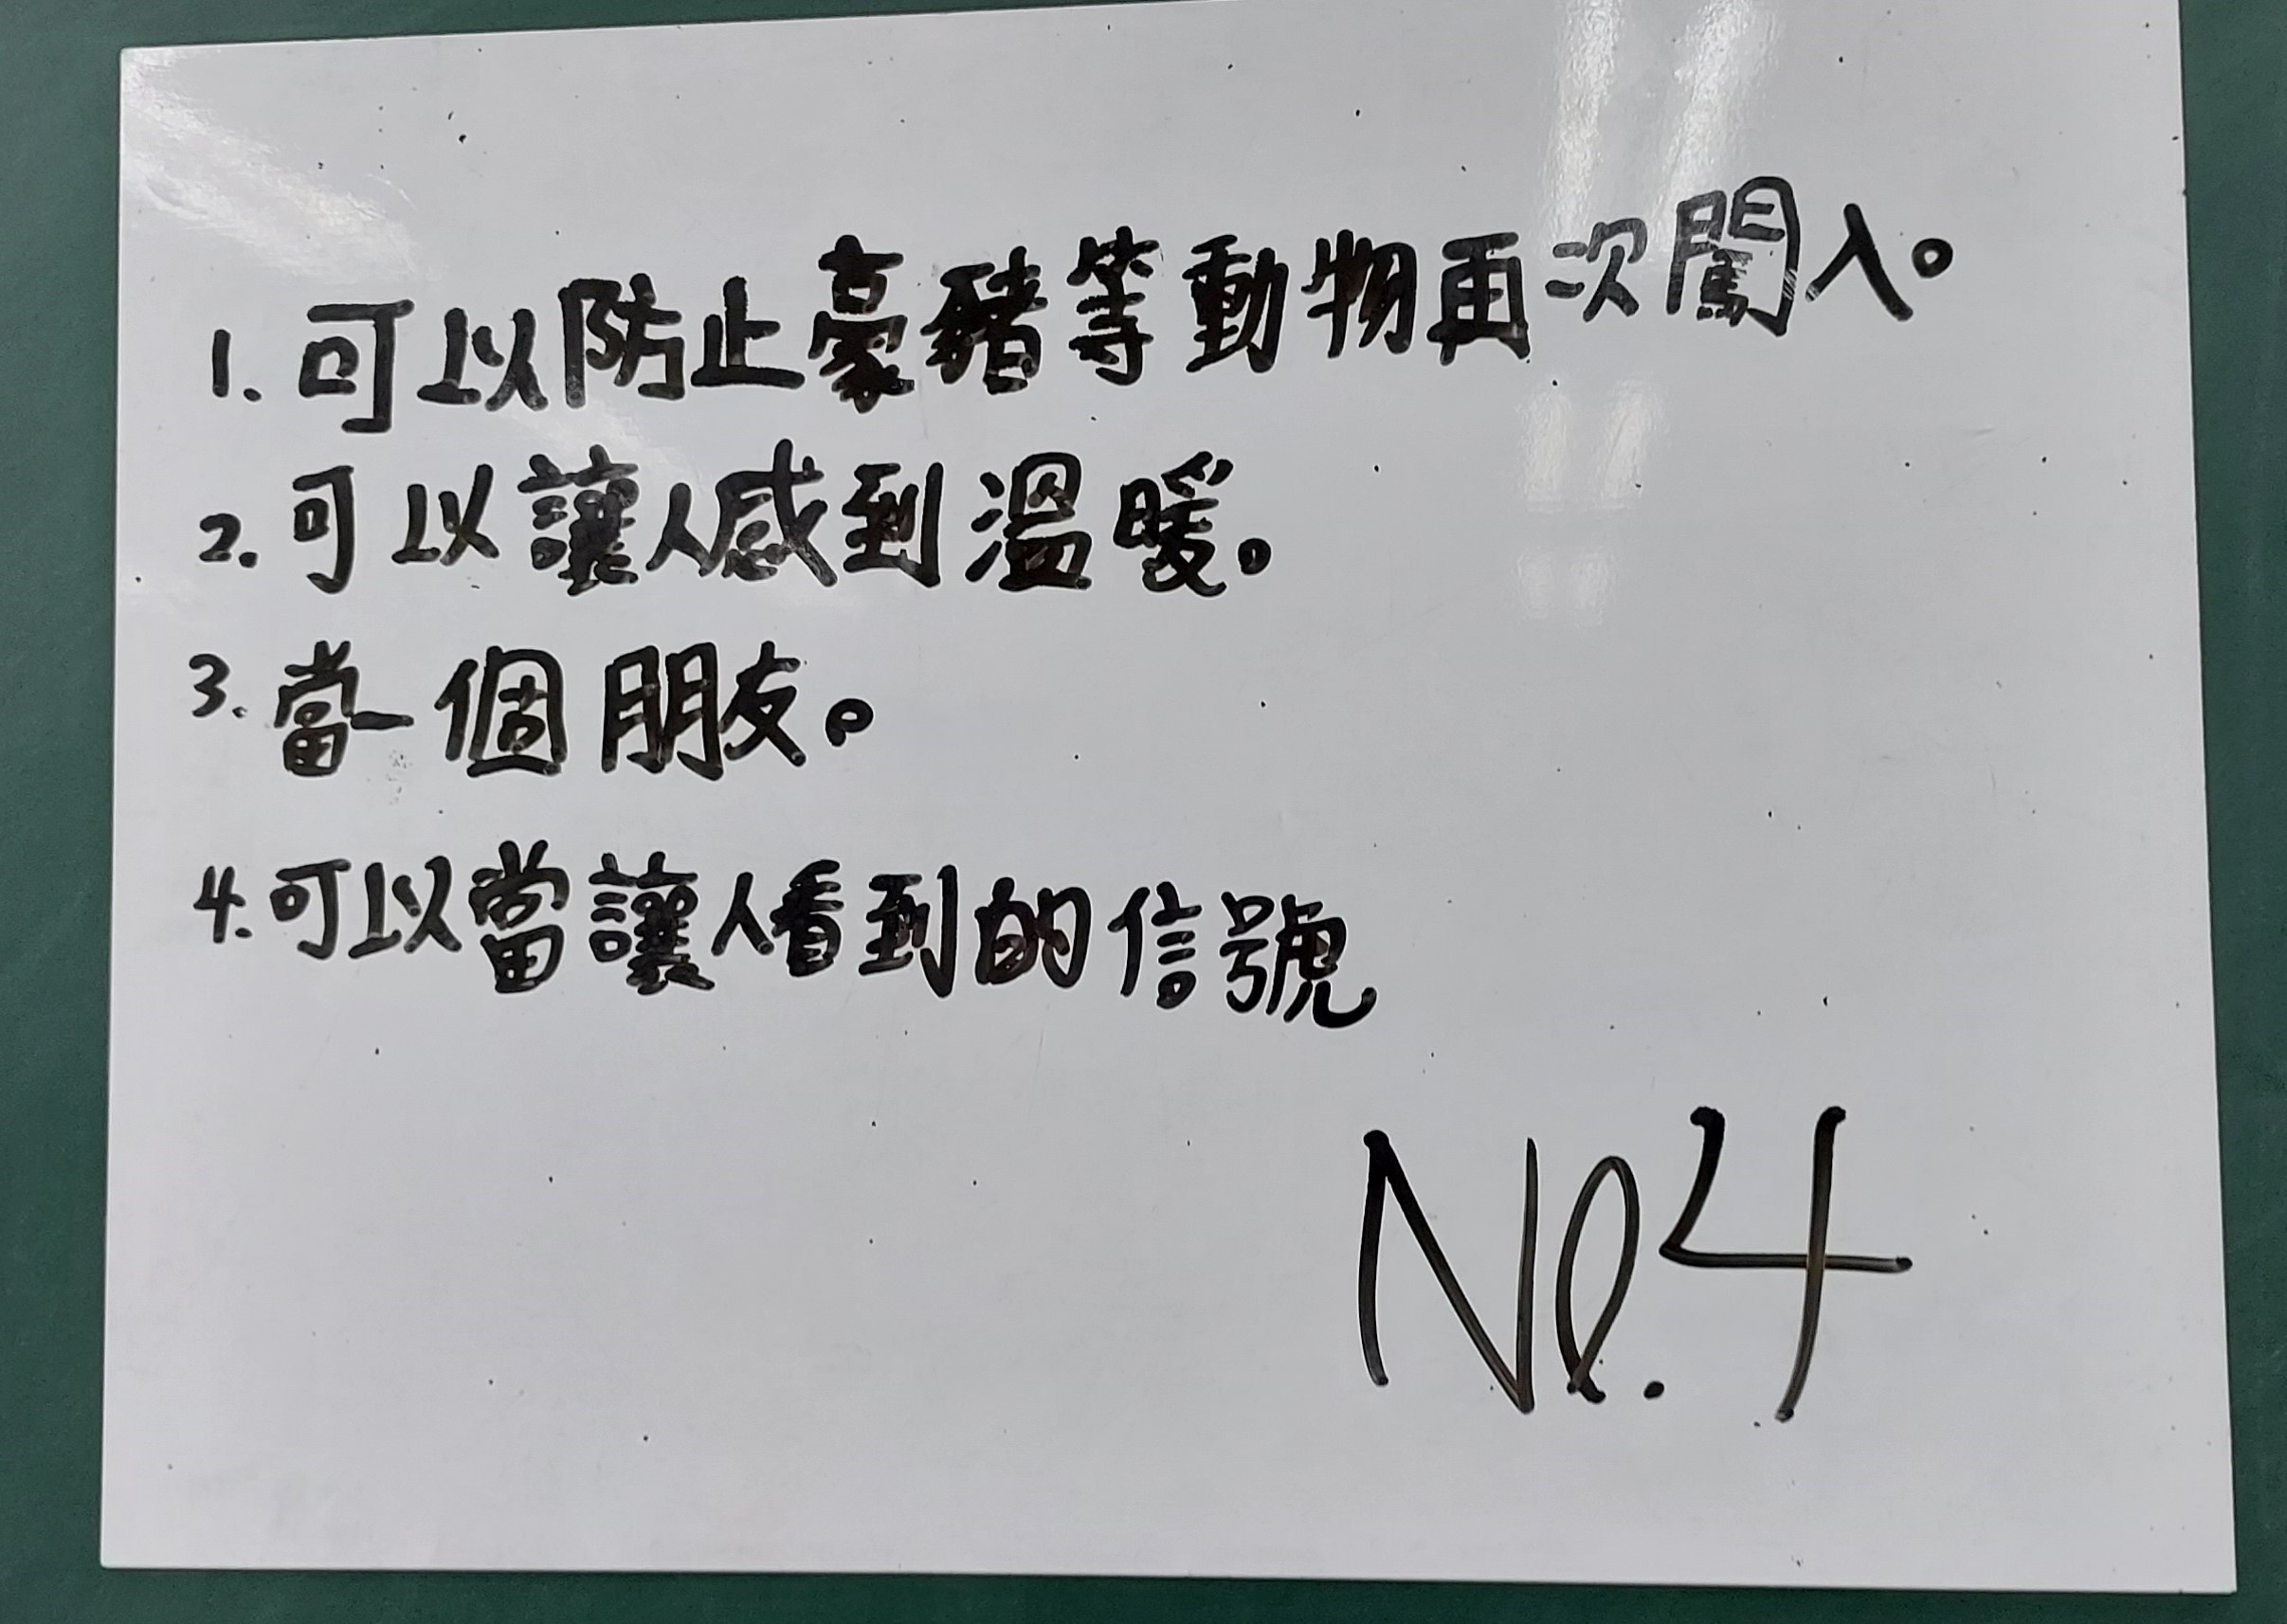 1. 可以防止豪豬等動物再次闖入。
2. 可以讓人感到溫暖。
3. 當一個朋友。
4. 可以當讓人看到的信號
No.4